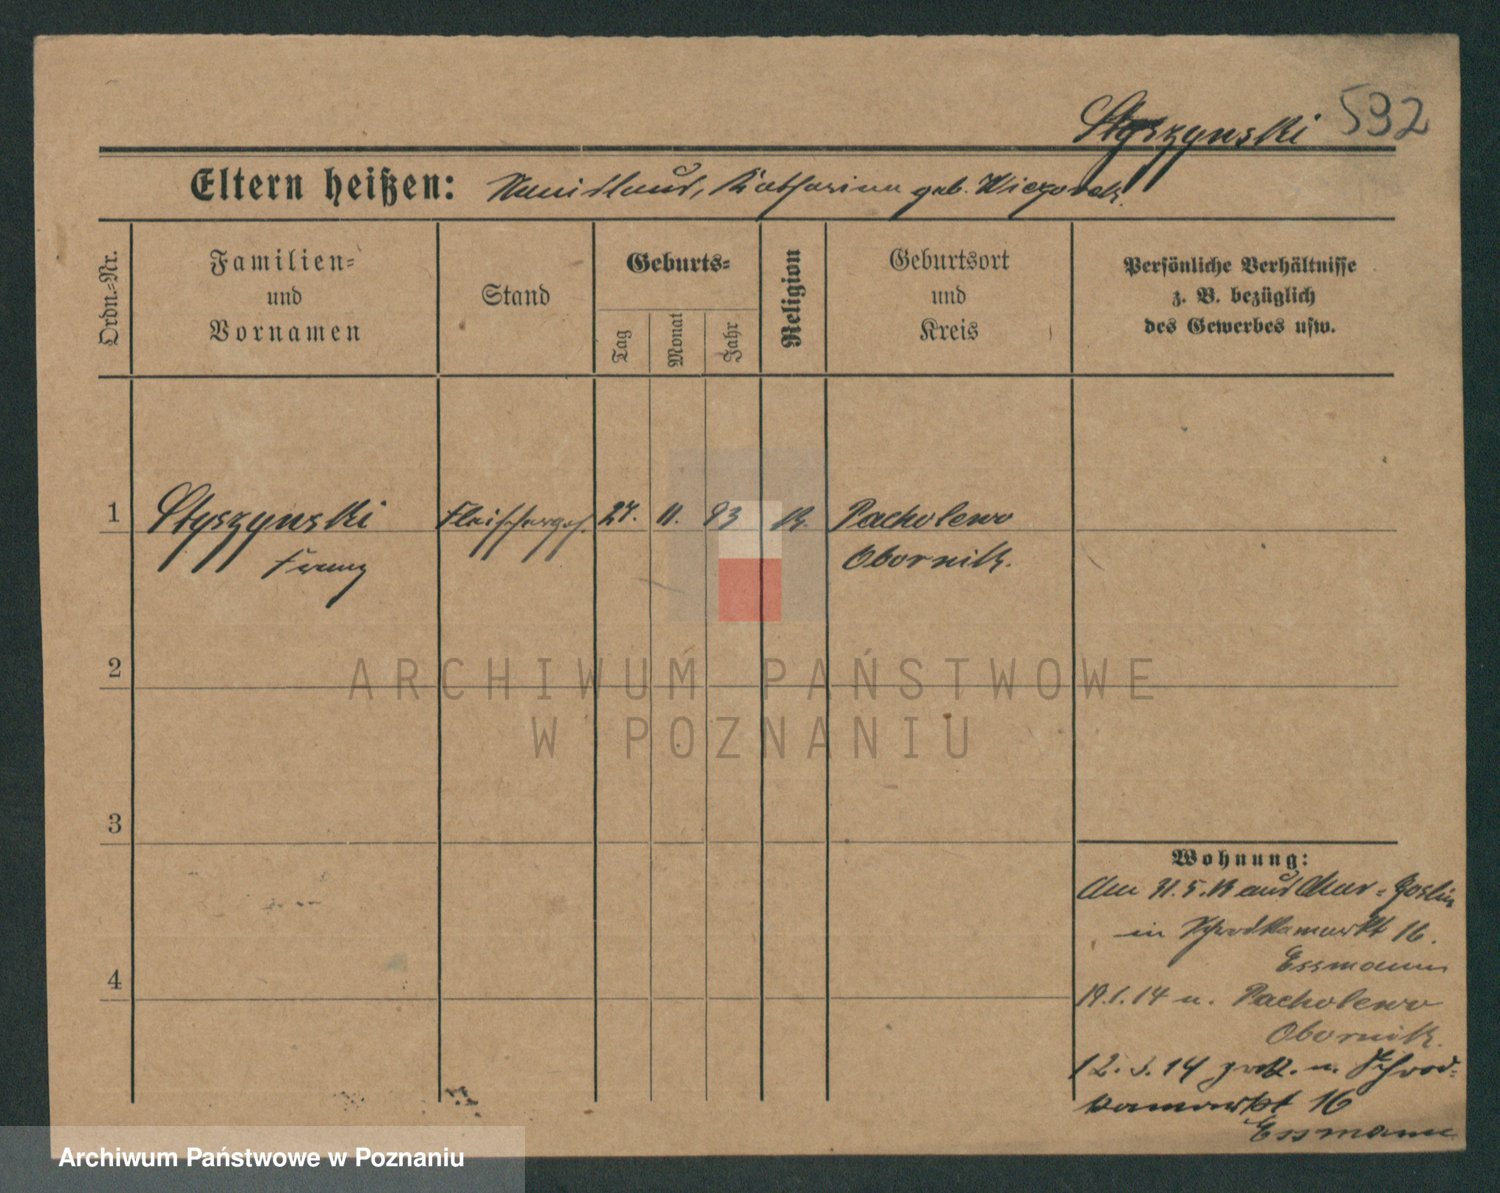 Styszynski 592
Eltern heißen: Katharina geb. Wieczorek.
Ordn.-Nr.
Familien-
und
Vornamen
Stand
Geburts-
Tag
Monat
Jahr
Religion
Geburtsort
und
Kreis
Persönliche Verhältnisse
z. B. bezüglich
des Gewerbes usw.
1 Styszynski Fleischerges. 27. 11. 93 K. Pacholewo
Franz Obornik.
2
3
4
Wohnung:
Am 31.5.13 aus Mur-Goslin
in Schrodkamarkt 16.
Essmann
19.1.14 n. Pacholewo
Obornik.
12.3.14 zrck. n. Schrod-
kamarkt 16
Essmann
ARCHIWUM PAŃSTWOWE
W POZNANIU
Archiwum Państwowe w Poznaniu